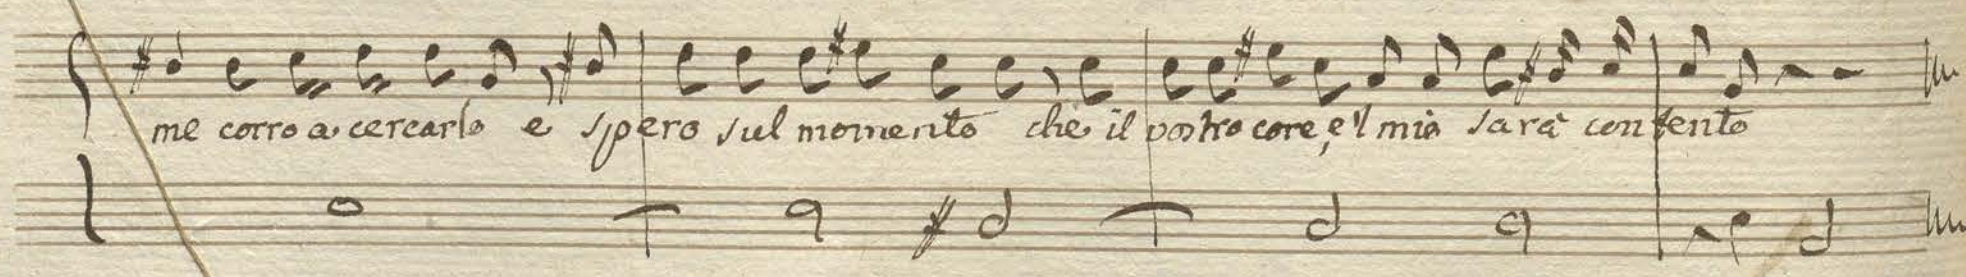 me corro a cercarlo e spero sul momento che il vostro core, e'l mio sarà contento